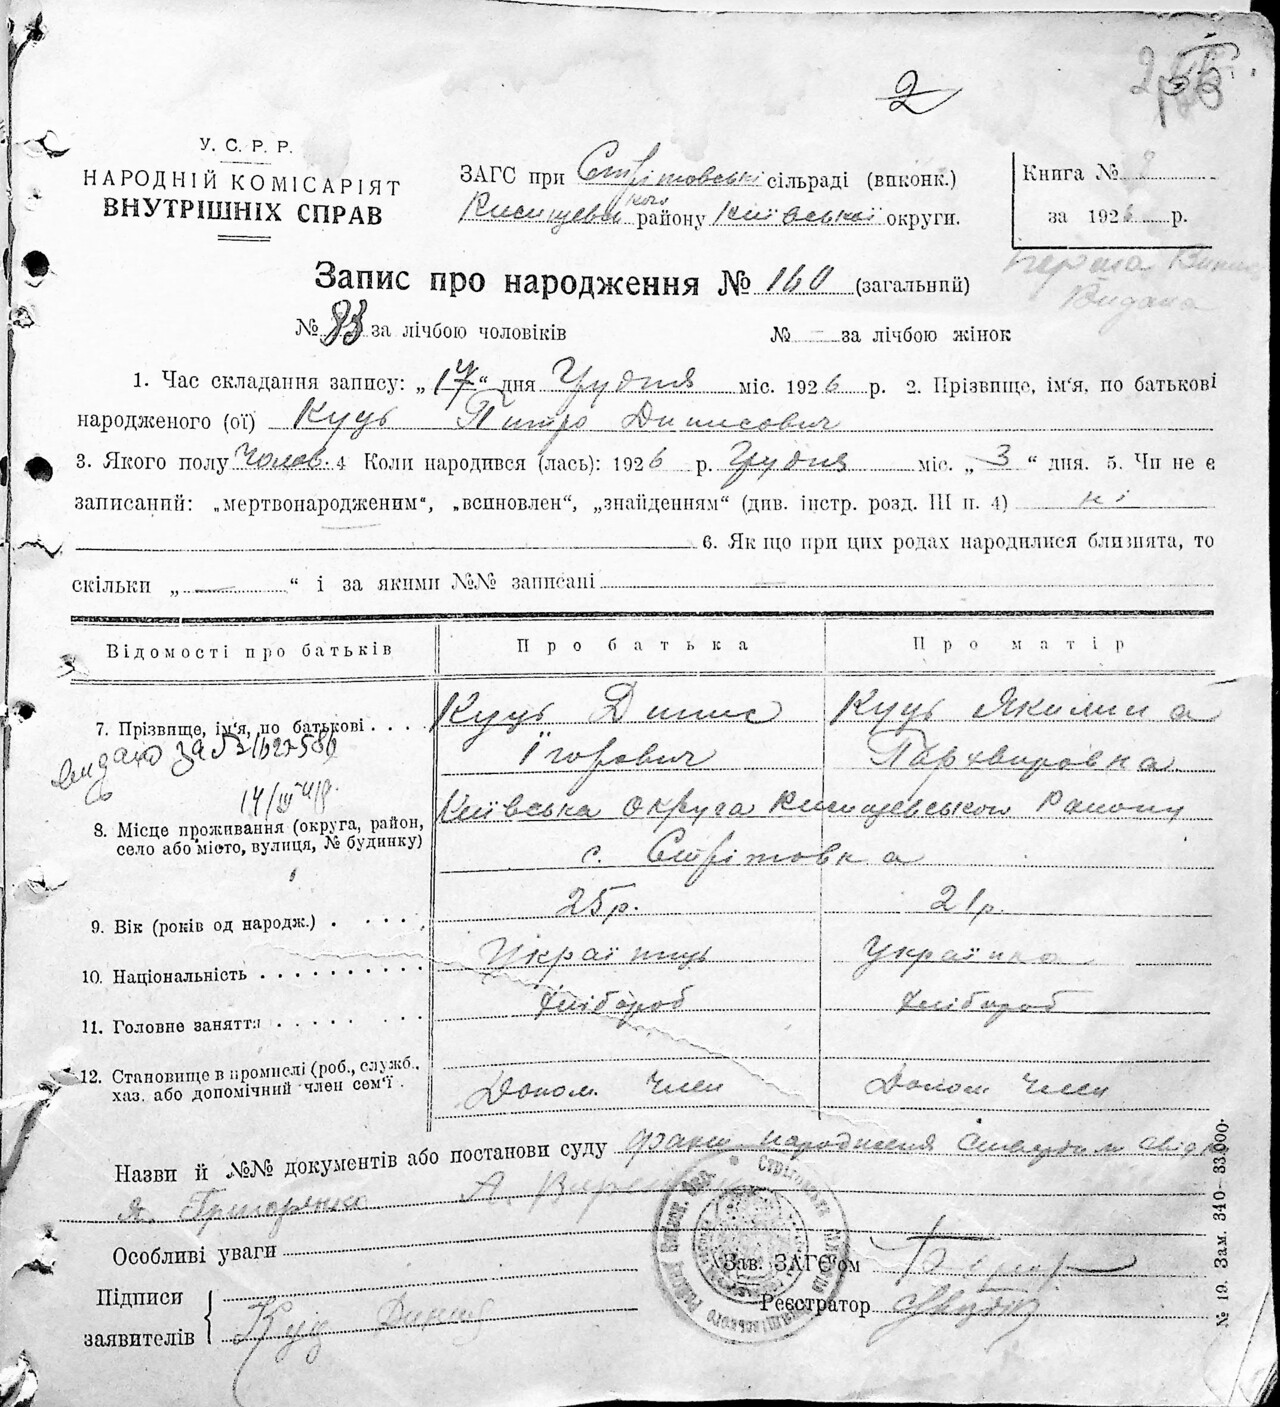 2
У. С. Р. Р.
НАРОДНІЙ КОМІСАРІЯТ
ВНУТРІШНІХ СПРАВ
ЗАГС при Стрітовські сільраді (виконк.)
Кагого району Київської округи.
Книга № 2
за 1926 р.
Видана
Запис про народження № 160 (загальний)
№ 83 за лічбою чоловіків № – за лічбою жінок
1. Час складання запису: „17“ дня Грудня міс. 1926 р. 2. Прізвище, ім‘я, по батькові
народженого (ої) Куць Питро Динисович
3. Якого полу Чолов. 4 Коли народився (лась): 1926 р. Грудня міс. „3“ дня. 5. Чи не є
записаний: „мертвонародженим“, „всиновлен“, „знайденням“ (див. інстр. розд. III п. 4) ні
6. Як що при цих родах народилися близнята, то
скільки „ — “ і за якими №№ записані —
Відомості про батьків Про батька Про матір
7. Прізвище, ім‘я, по батькові . . . . Куць Динис Куць Якилина
Ігорович Пархвировна
8. Місце проживання (округа, район, село або місто, вулиця, № будинку) Київська округа Району
с. Стрітовка
9. Вік (років од народж.) . . . . . 25р. 21р.
10. Національність . . . . . . . . . . Українець Українка
11. Головне заняття . . . . . . . . Хлібороб Хлібороб
12. Становище в промислі (роб., служб., хаз. або допомічний член сем‘ї . Допом. Член Допом. Член
Назви й №№ документів або постанови суду факт народженя
Я. Григоренко А.
Особливі уваги
Зав. ЗАГС‘ом
Підписи
заявителів Куц Динис
Реєстратор
№ 19. Зам. 340—33.000.